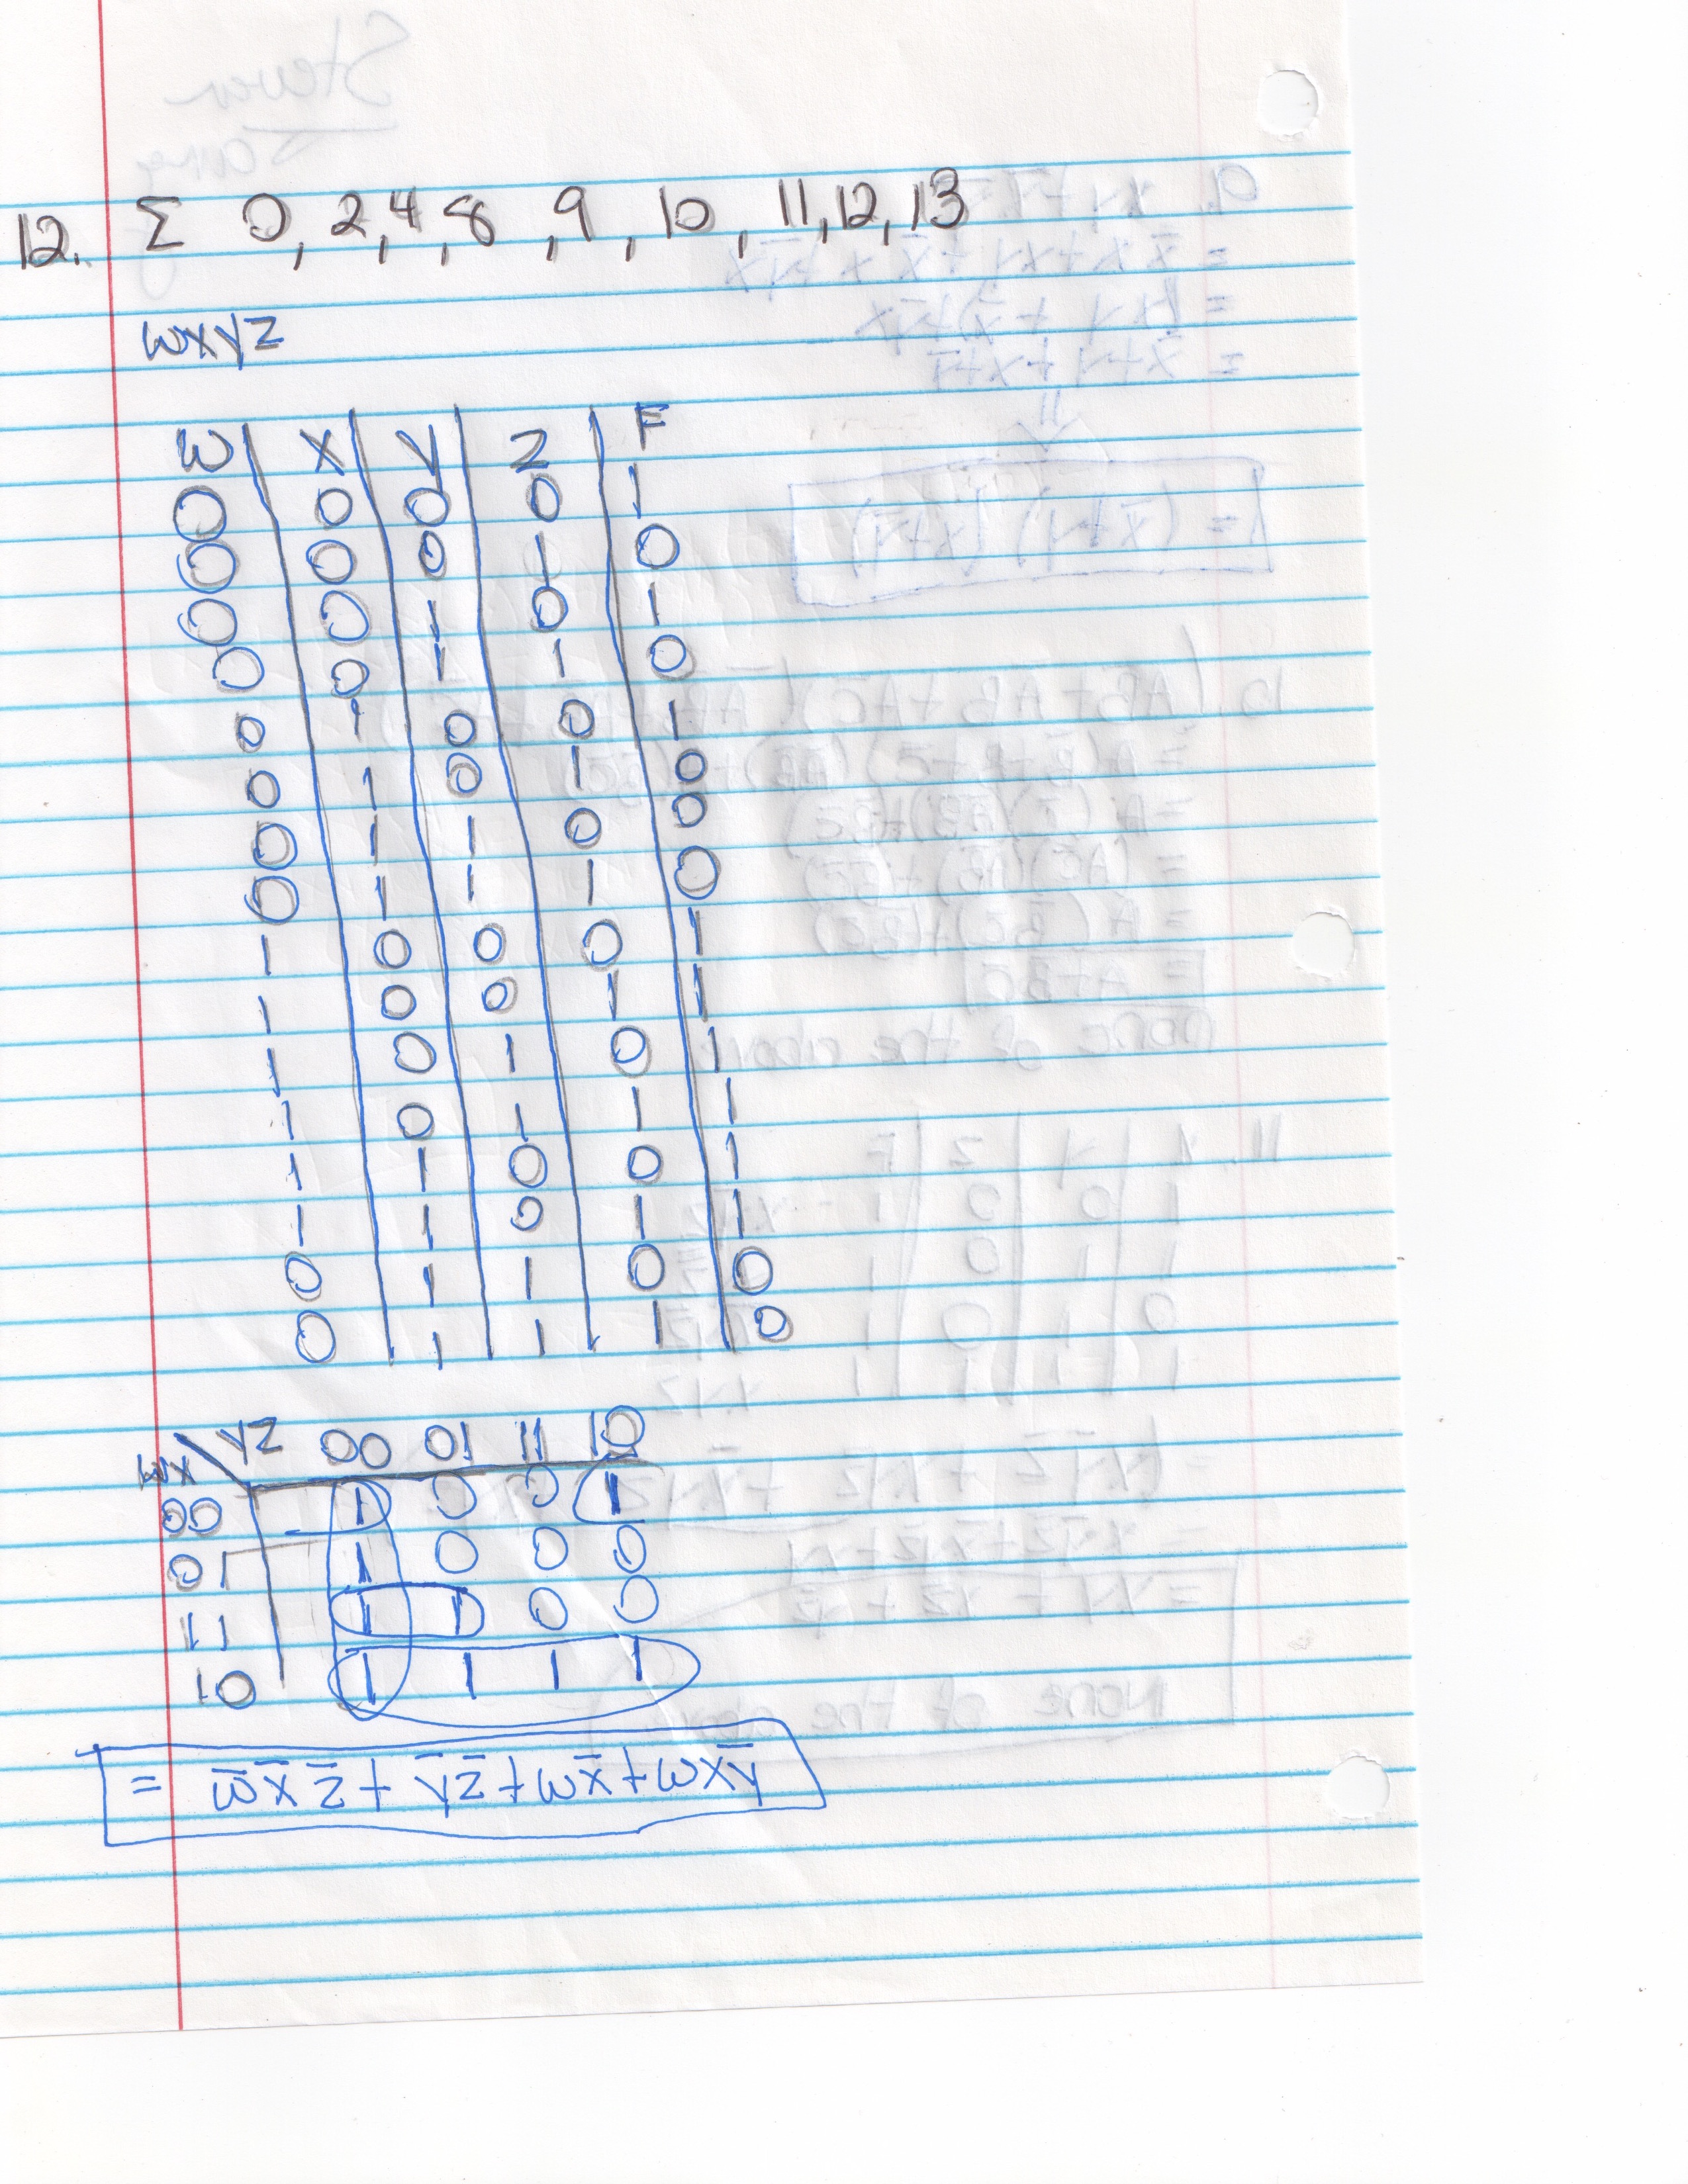 12. Σ 0, 2, 4, 8, 9, 10, 11, 12, 13
WXYZ
W X Y Z F
0 0 0 0 1
0 0 0 1 0
0 0 1 0 1
0 0 1 1 0
0 1 0 0 1
0 1 0 1 0
0 1 1 0 0
0 1 1 1 0
1 0 0 0 1
1 0 0 1 1
1 0 1 0 1
1 0 1 1 1
1 1 0 0 1
1 1 0 1 1
0 1 1 0 0
0 1 1 1 0
WX \ YZ 00 01 11 10
00 1 0 0 1
01 1 0 0 0
11 1 1 0 0
10 1 1 1 1
= w̄x̄z̄ + ȳz̄ + wx̄ + wxȳ